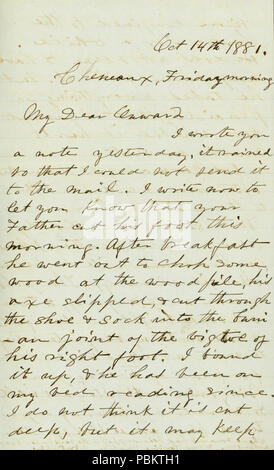 Oct 14th 1881.
Cheneaux, Friday morning
My Dear Onward
I wrote you
a note yesterday, it rained
so that I could not send it
to the mail. I write now to
let you know that your
Father cut his foot this
morning. After breakfast
he went out to chop some
wood at the woodpile, his
axe slipped, & cut through
the shoe & sock into the
an joint of the big toe of
his right foot. I bound
it up, & he has been on
my bed reading since.
I do not think it is cut
deep, but it may keep
alamy
www.alamy.com
PBKTH1